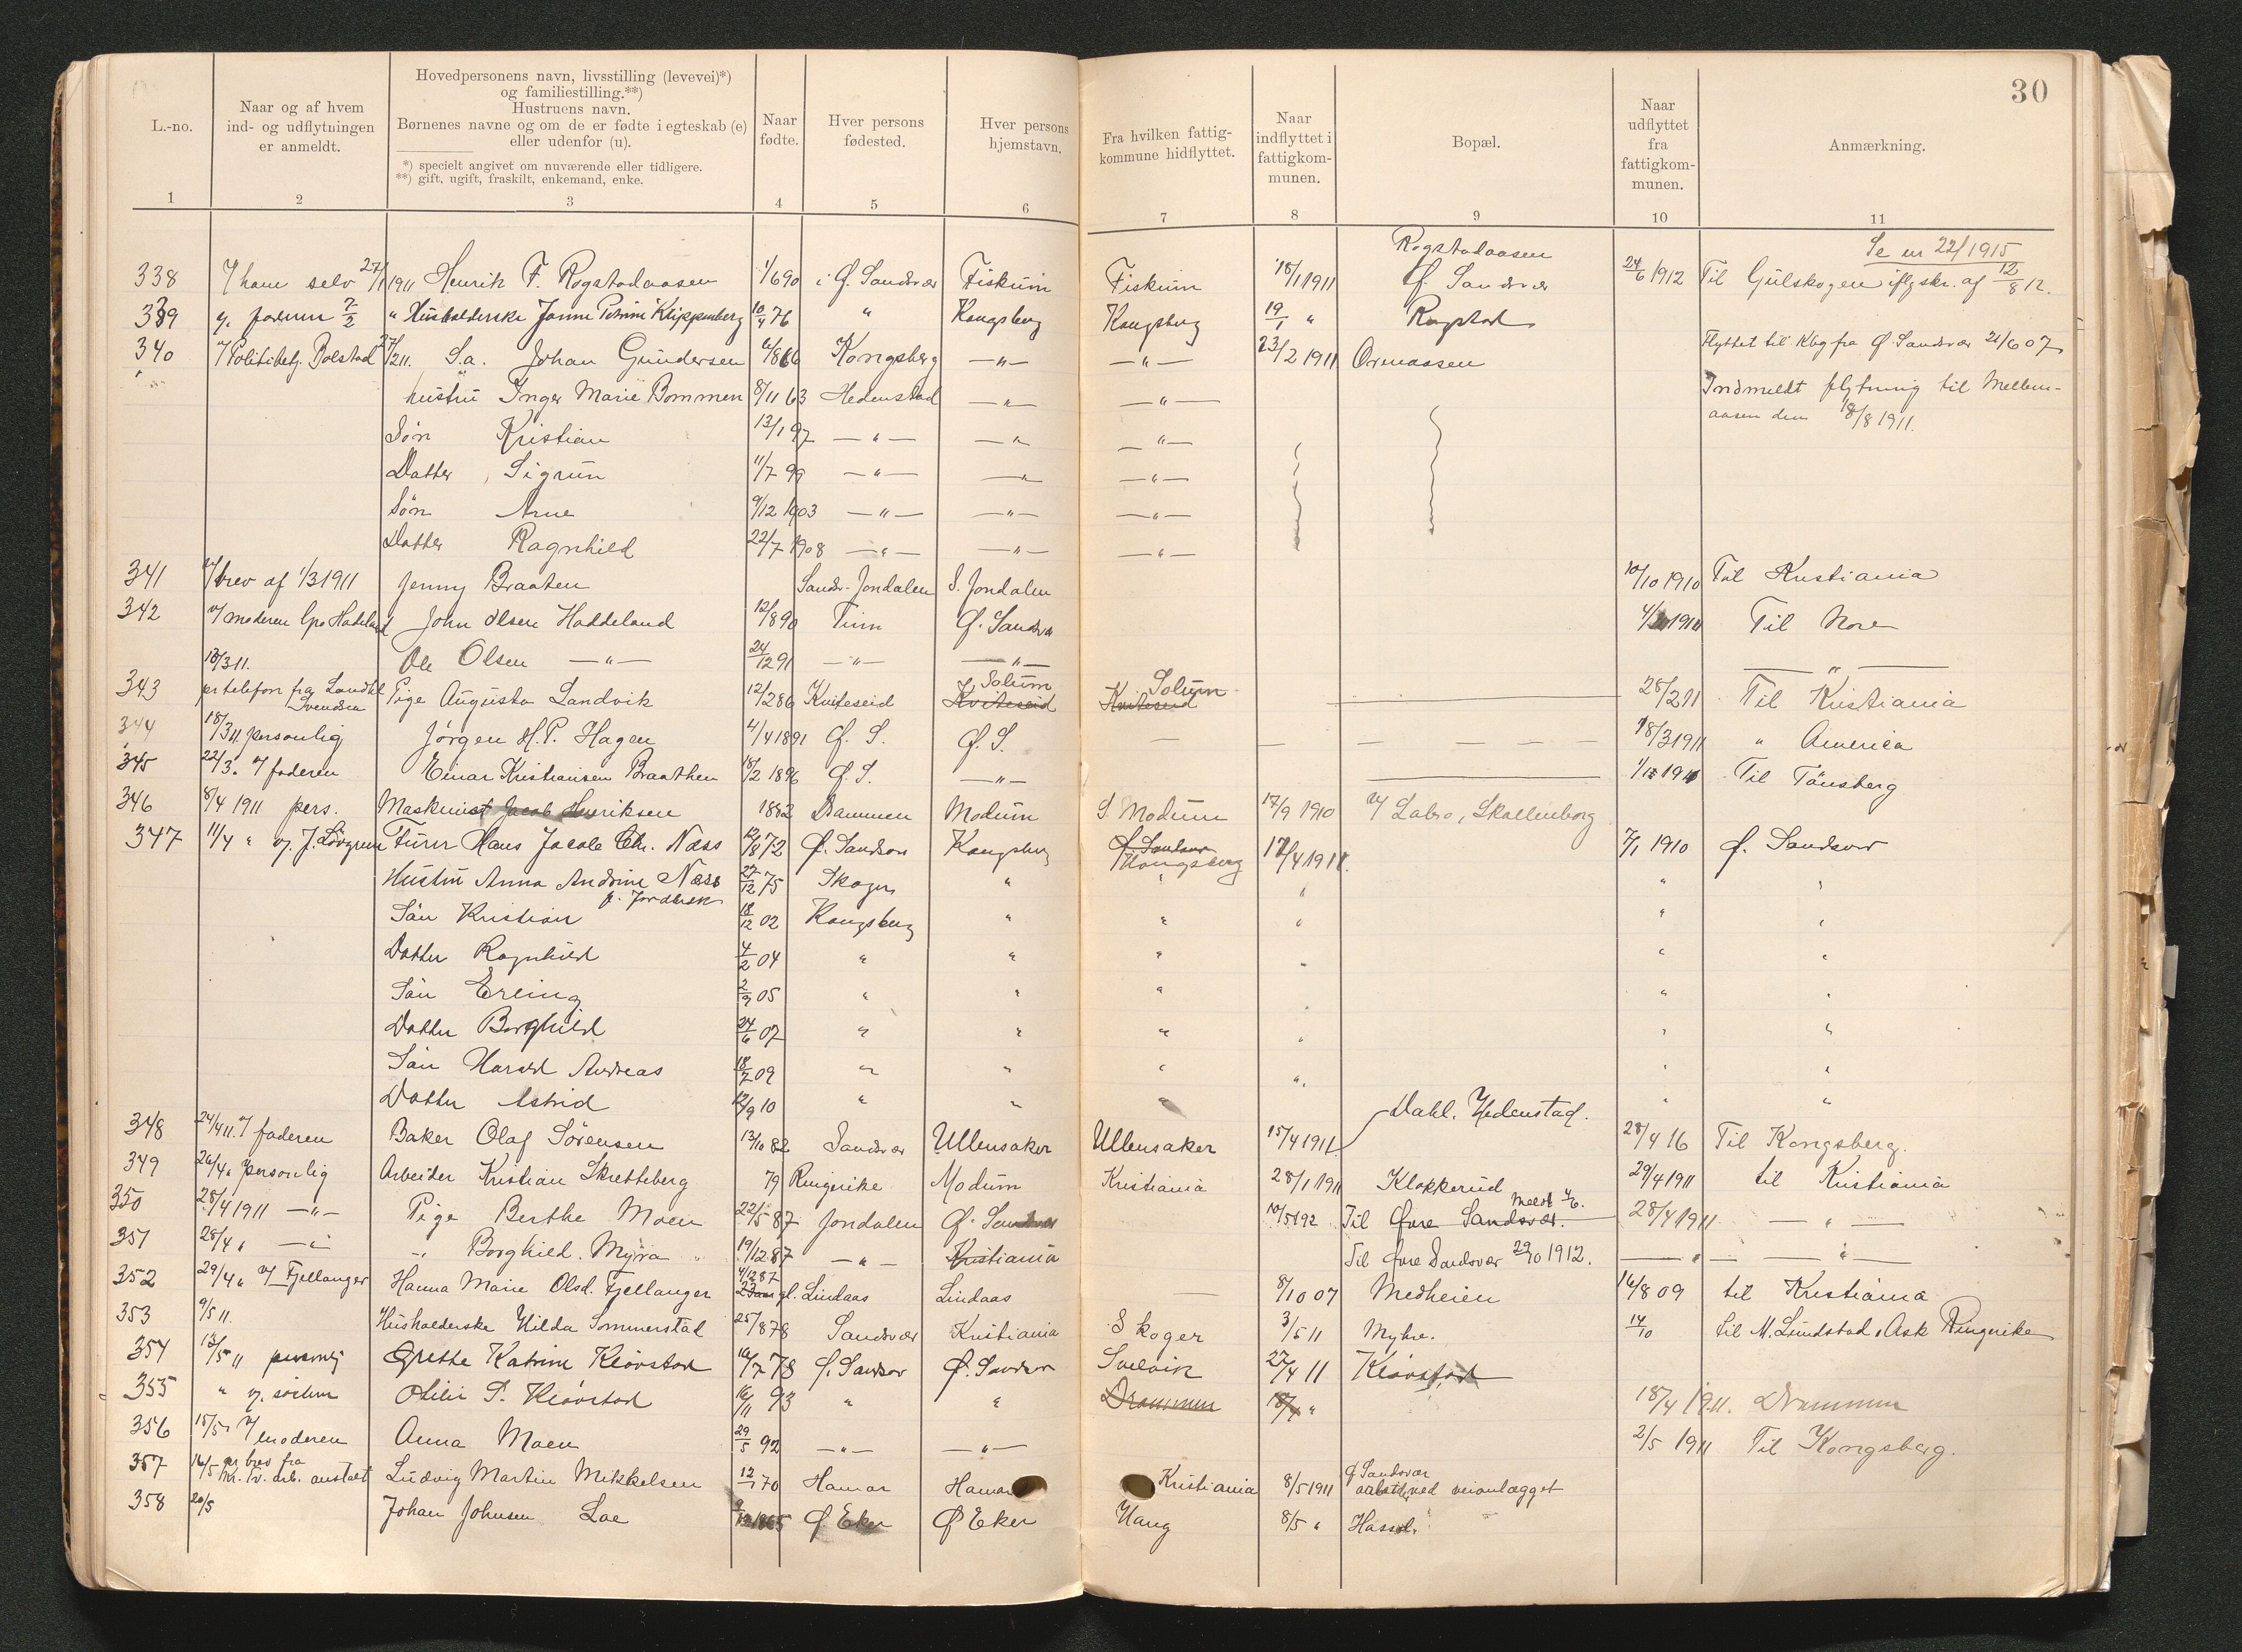 30
L.-no.
Naar og af hvem
ind- og udflytningen
er anmeldt.
Hovedpersonens navn, livsstilling (levevei)*)
og familiestilling.**)
Hustruens navn.
Børnenes navne og om de er fødte i egteskab (e)
eller udenfor (u).
*) specielt angivet om nuværende eller tidligere.
**) gift, ugift, fraskilt, enkemand, enke.
Naar
fødte.
Hver persons
fødested.
Hver persons
hjemstavn.
Fra hvilken fattig-
kommune hidflyttet.
Naar
indflyttet i
fattigkom-
munen.
Bopæl.
Naar
udflyttet
fra
fattigkom-
munen.
Anmærkning.
1 2 3 4 5 6 7 8 9 10 11
Rogstadaasen Se nr 22/1915
338 v/ ham selv 27/1 1911 Henrik F. Rogstadaasen 1/6 90 i Ø. Sandsvær Fiskum Fiskum 18/1 1911 Ø. Sandsvær 24/6 1912 Til Gulskogen iflg skr. af 12/8 12.
339 v. faderen 7/2 " Husholderske Janna Petrine Klippenberg 10/4 76 " Kongsberg Kongsberg 19/1 " Rogstad
340 v/ Politibetj. Bolstad 27/2 11. S.a. Johan Gundersen 6/8 66 Kongsberg —"— —"— 23/2 1911 Ormaasen Flyttet til Kbg fra Ø. Sandsvær 21/6 07
hustru Inger Marie Bommen 8/11 63 Hedenstad —"— —"— Indmeldt flytning til Mellem-
aasen den 18/8 1911.
Søn Kristian 13/1 97 —"— —"— —"—
Datter Sigrun 11/7 99 —"— —"— —"—
Søn Arne 9/12 1903 —"— —"— —"—
Datter Ragnhild 22/7 1908 —"— —"— —"—
341 v/ brev af 1/3 1911 Jenny Braaten Sandv. Jondalen S. Jondalen 10/10 1910 Til Kristiania
342 v/ moderen Haddeland John Olsen Haddeland 12/8 90 Tinn Ø. Sandsv 1911 Til Nore
13/3 11. Ole Olsen —"— 24/12 91 —"— —"— —"—
Solum Solum
343 pr telefon fra Landh. Svendsen Pige Augusta Landvik 12/2 86 Kviteseid Kviteseid Kviteseid 28/2 11 Til Kristiania
344 18/3 11. personlig Jørgen H.P. Hagen 4/4 1891 Ø. S. Ø. S. — — 18/3 1911 " America
345 22/3 " v/ faderen Einar Kristiansen Braathen 18/2 1896 Ø. S. —"— Til Tønsberg
346 8/4 1911 pers. Maskinist Jacob Henriksen 1882 Drammen Modum S. Modum 17/9 1910 v/ Labro, Skollenborg
347 11/4 " v. J. Løvgren Furer Hans Jacob Chr. Næss 12/8 72 Ø. Sandsvær Kongsberg Ø. Sandsvær Kongsberg 1911. 7/1 1910 Ø. Sandsvær
Hustru Anna Andrine Næss 27/12 75 Skoger " " " " "
f. Jordbræk
Søn Kristian 18/12 02 Kongsberg " " " " "
Datter Ragnhild 4/2 04 " " " " " "
Søn Erling 2/9 05 " " " " " "
Datter Borghild 24/6 07 " " " " " "
Søn Harald Andreas 18/7 09 " " " " " "
Datter Astrid 12/9 10 " " " " "
Dahl. Hedenstad.
348 24/4 11. v/ faderen Baker Olaf Sørensen 13/10 82 Sandsvær Ullensaker Ullensaker 15/4 1911 28/4 16 Til Kongsberg.
349 26/4 " personlig Arbeider Kristian Skretteberg 79 Ringerike Modum Kristiania 28/1 1911 Klokkerud 29/4 1911 til Kristiania
350 28/4 1911 —"— Pige Berthe Moen 22/5 87 Jondalen Ø. Sandsvær 10/5 192 Til Øvre Sandsvær. Meldt 4/6. 28/4 1911 —"—
351 28/4 " —"— —"— Borghild Myra 19/12 87 —"— Kristiania Til Øvre Sandsvær 29/10 1912. —"— —"—
352 29/4 " v/ Fjellanger Hanna Marie Olsd. Fjellanger 4/12 87 23 aar gl. Lindaas Lindaas — 8/10 07 Medheien 16/8 09 til Kristiania
353 9/5 11. Husholderske Hilda Sommerstad 25/8 78 Sandsvær Kristiania Skoger 3/5 11 Myhre. 14/10 til M. Lundstad, Ask Ringerike
354 13/5 11 personlig Grethe Katrine Kløvstad 16/7 78 Ø. Sandsvær Ø. Sandsvær Svelvik 27/4 11 Kløvstad
355 " v. søsteren Otilie P. Kløvstad 16/11 93 " " Drammen 18/4 " 18/4 1911. Drammen
356 15/5 v/ moderen Anna Moen 29/5 92 —"— —"— 2/5 1911 Til Kongsberg.
357 16/5 pr brev fra Kr. tv. arb. anstalt Ludvig Martin Mikkelsen 12/1 70 Hamar Hamar Kristiania 8/5 1911 Ø Sandsvær arbeider ved veianlægget
358 20/5 Johan Johnsen Loe 1865 Ø Eker Ø Eker Haug 8/5 " Hassel.